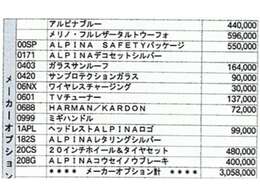 アルピナブルー 440,000
メリノ・フルレザールトウーフォ 596,000
00SP ALPINA SAFETYパッケージ 550,000
0171 ALPINAデコセットシルバー
0403 ガラスサンルーフ 164,000
0420 サンプロテクションガラス 90,000
06NX ワイヤレスチャージング 30,000
0601 TVチューナー 137,000
0688 HARMAN/KARDON 72,000
0999 ミギハンドル
1APL ヘッドレストALPINAロゴ 99,000
182S ALPINAレタリングシルバー
20CS 20インチホイール&タイヤセット 480,000
208G ALPINAコウセイノウブレーキ 400,000
**** メーカーオプション計 **** 3,058,000
メーカーオプション